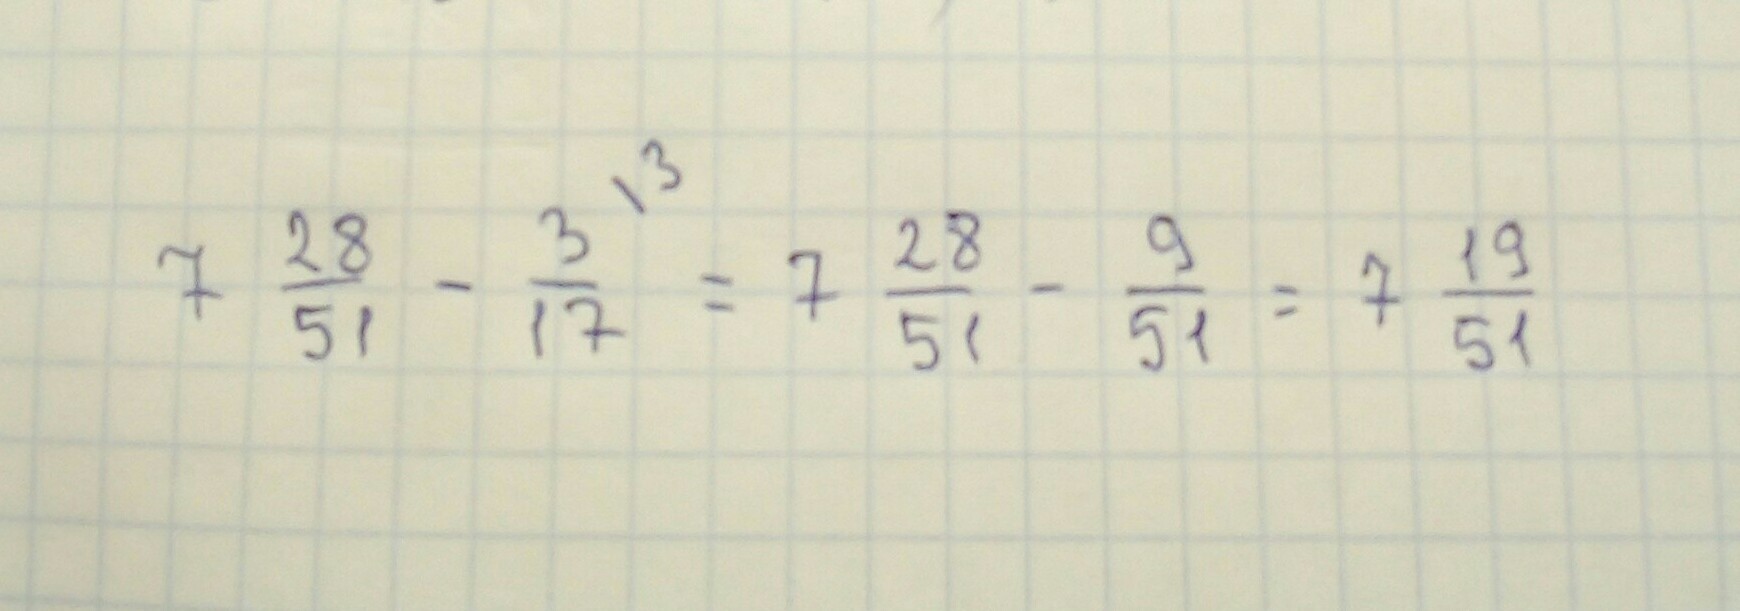 7 28/51 - 3/17 \3 = 7 28/51 - 9/51 = 7 19/51